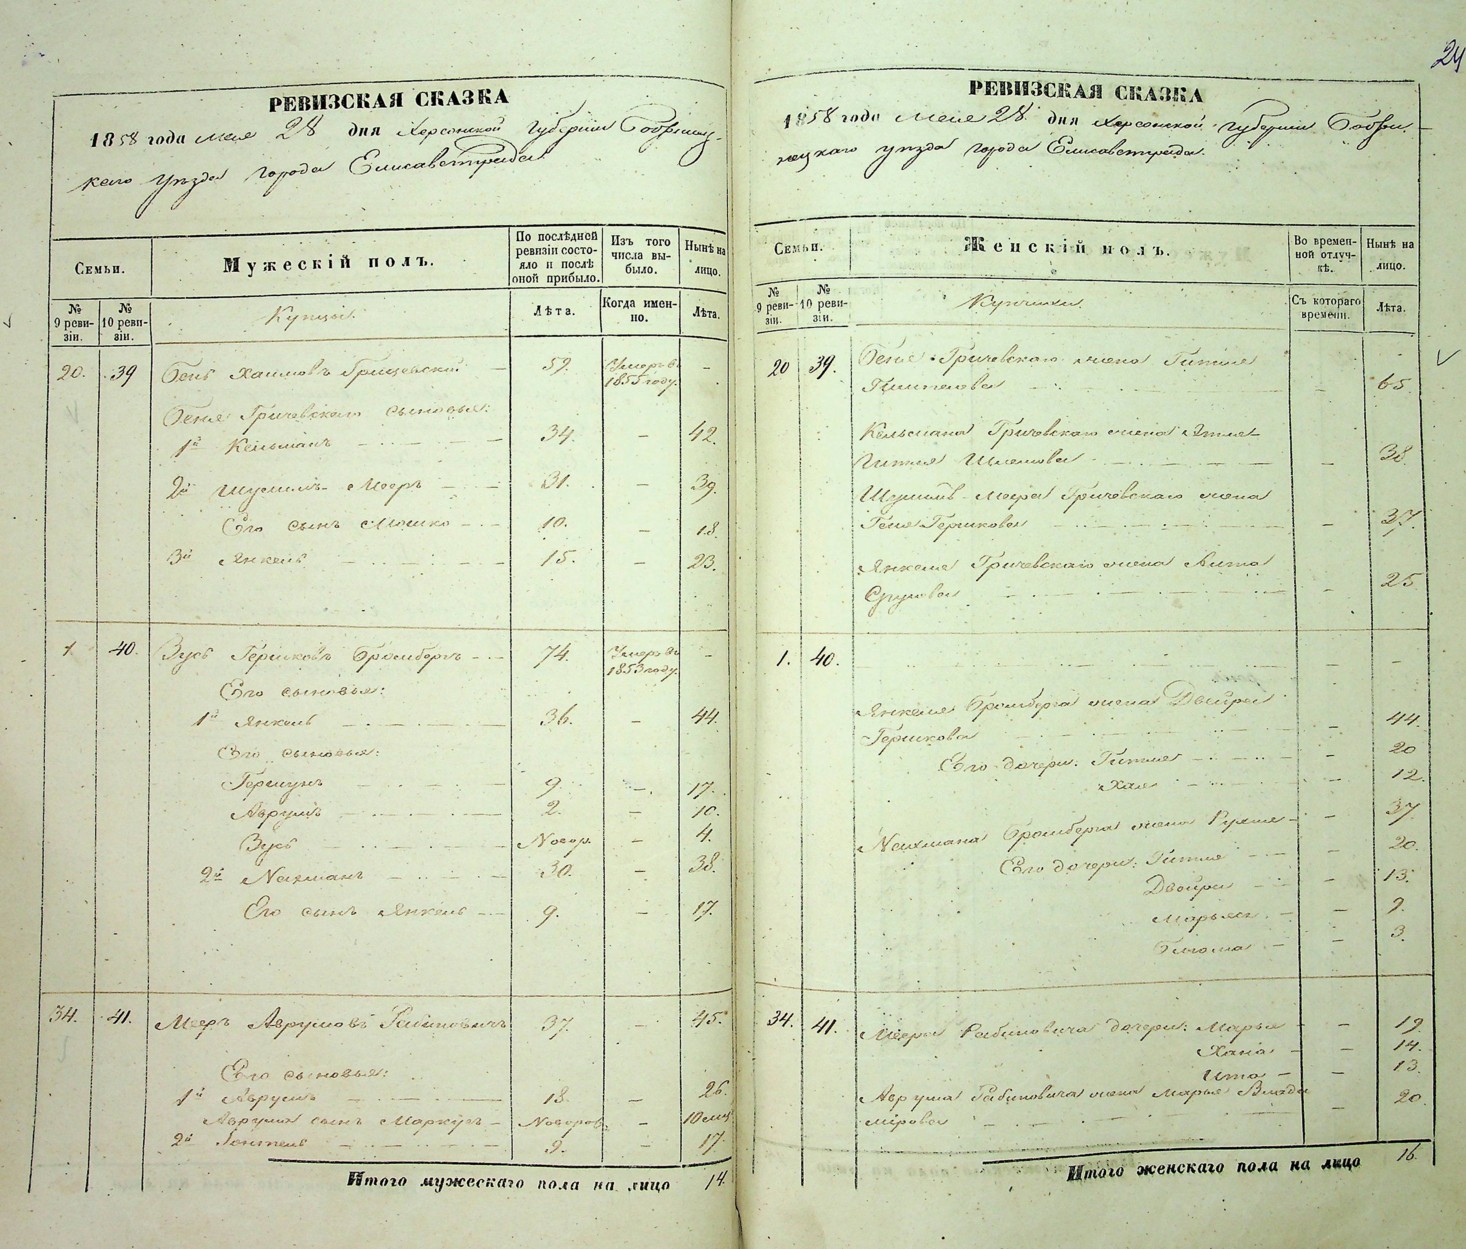 24
РЕВИЗСКАЯ СКАЗКА
1858 года мая 28 дня Херсонской Губернии Бобринец-
каго уѣзда города Елисаветграда.
Семьи.
Мужескій полъ.
По послѣдней ревизіи состояло и послѣ оной прибыло.
Изъ того числа выбыло.
Нынѣ на лицо.
№ 9 ревизіи.
№ 10 ревизіи.
Купцы.
Лѣта.
Когда именно.
Лѣта.
20. 39 Бень Хаимовъ Гричевский — 59. Умеръ въ 1855 году. —
Беня Гричевскаго сыновья:
1й Кельманъ — 34. — 42.
2й Шулимъ-Мееръ — 31. — 39.
Его сынъ Мошко — 10. — 18.
3й Янкель — 15. — 23.
1. 40. Зусь Гершковъ Бромбергъ — 74. Умеръ въ 1853 году. —
Его сыновья:
1й Янкель — 36. — 44.
Его сыновья:
Гершунъ — 9. — 17.
Аврумъ — 2. — 10.
Зусь — Новор. — 4.
2й Нахманъ — 30. — 38.
Его сынъ Янкель — 9. — 17.
34. 41. Мееръ Аврумовъ Рабиновичъ 37. — 45.
Его сыновья:
1й Аврумъ — 18. — 26.
Аврума сынъ Маркусъ — Новорож. — 10 мец.
2й — 9. — 17.
Итого мужескаго пола на лицо 14.
РЕВИЗСКАЯ СКАЗКА
1858 года мая 28 дня Херсонской Губернии Бобри-
нецкаго уѣзда города Елисаветграда.
Семьи.
Женскій полъ.
Во временной отлучкѣ.
Нынѣ на лицо.
№ 9 ревизіи.
№ 10 ревизіи.
Купчихи.
Съ котораго времени.
Лѣта.
20 39. Беня Гричевскаго жена Гитля
— — 65
Кельмана Гричевскаго жена
— — 38
Шулимъ-Меера Гричевскаго жена
Геня Гершкова — — 37.
Янкеля Гричевскаго жена
Срулова — — 25
1. 40. — — —
Янкеля Бромберга жена Двойра
Гершкова — — 44
Его дочери: Гитля — — 20
Хая — — 12.
Нахмана Бромберга жена Рухля — — 37
Его дочери: Гитля — — 20.
Двойра — — 13.
Марьяся — — 9.
Блюма — — 3.
34. 41. Меера Рабиновича дочери: Марья — — 19.
Хана — — 14.
Ита — — 13.
Аврума Рабиновича жена Марья Влади
мірова — — 20.
Итого женскаго пола на лицо 16.